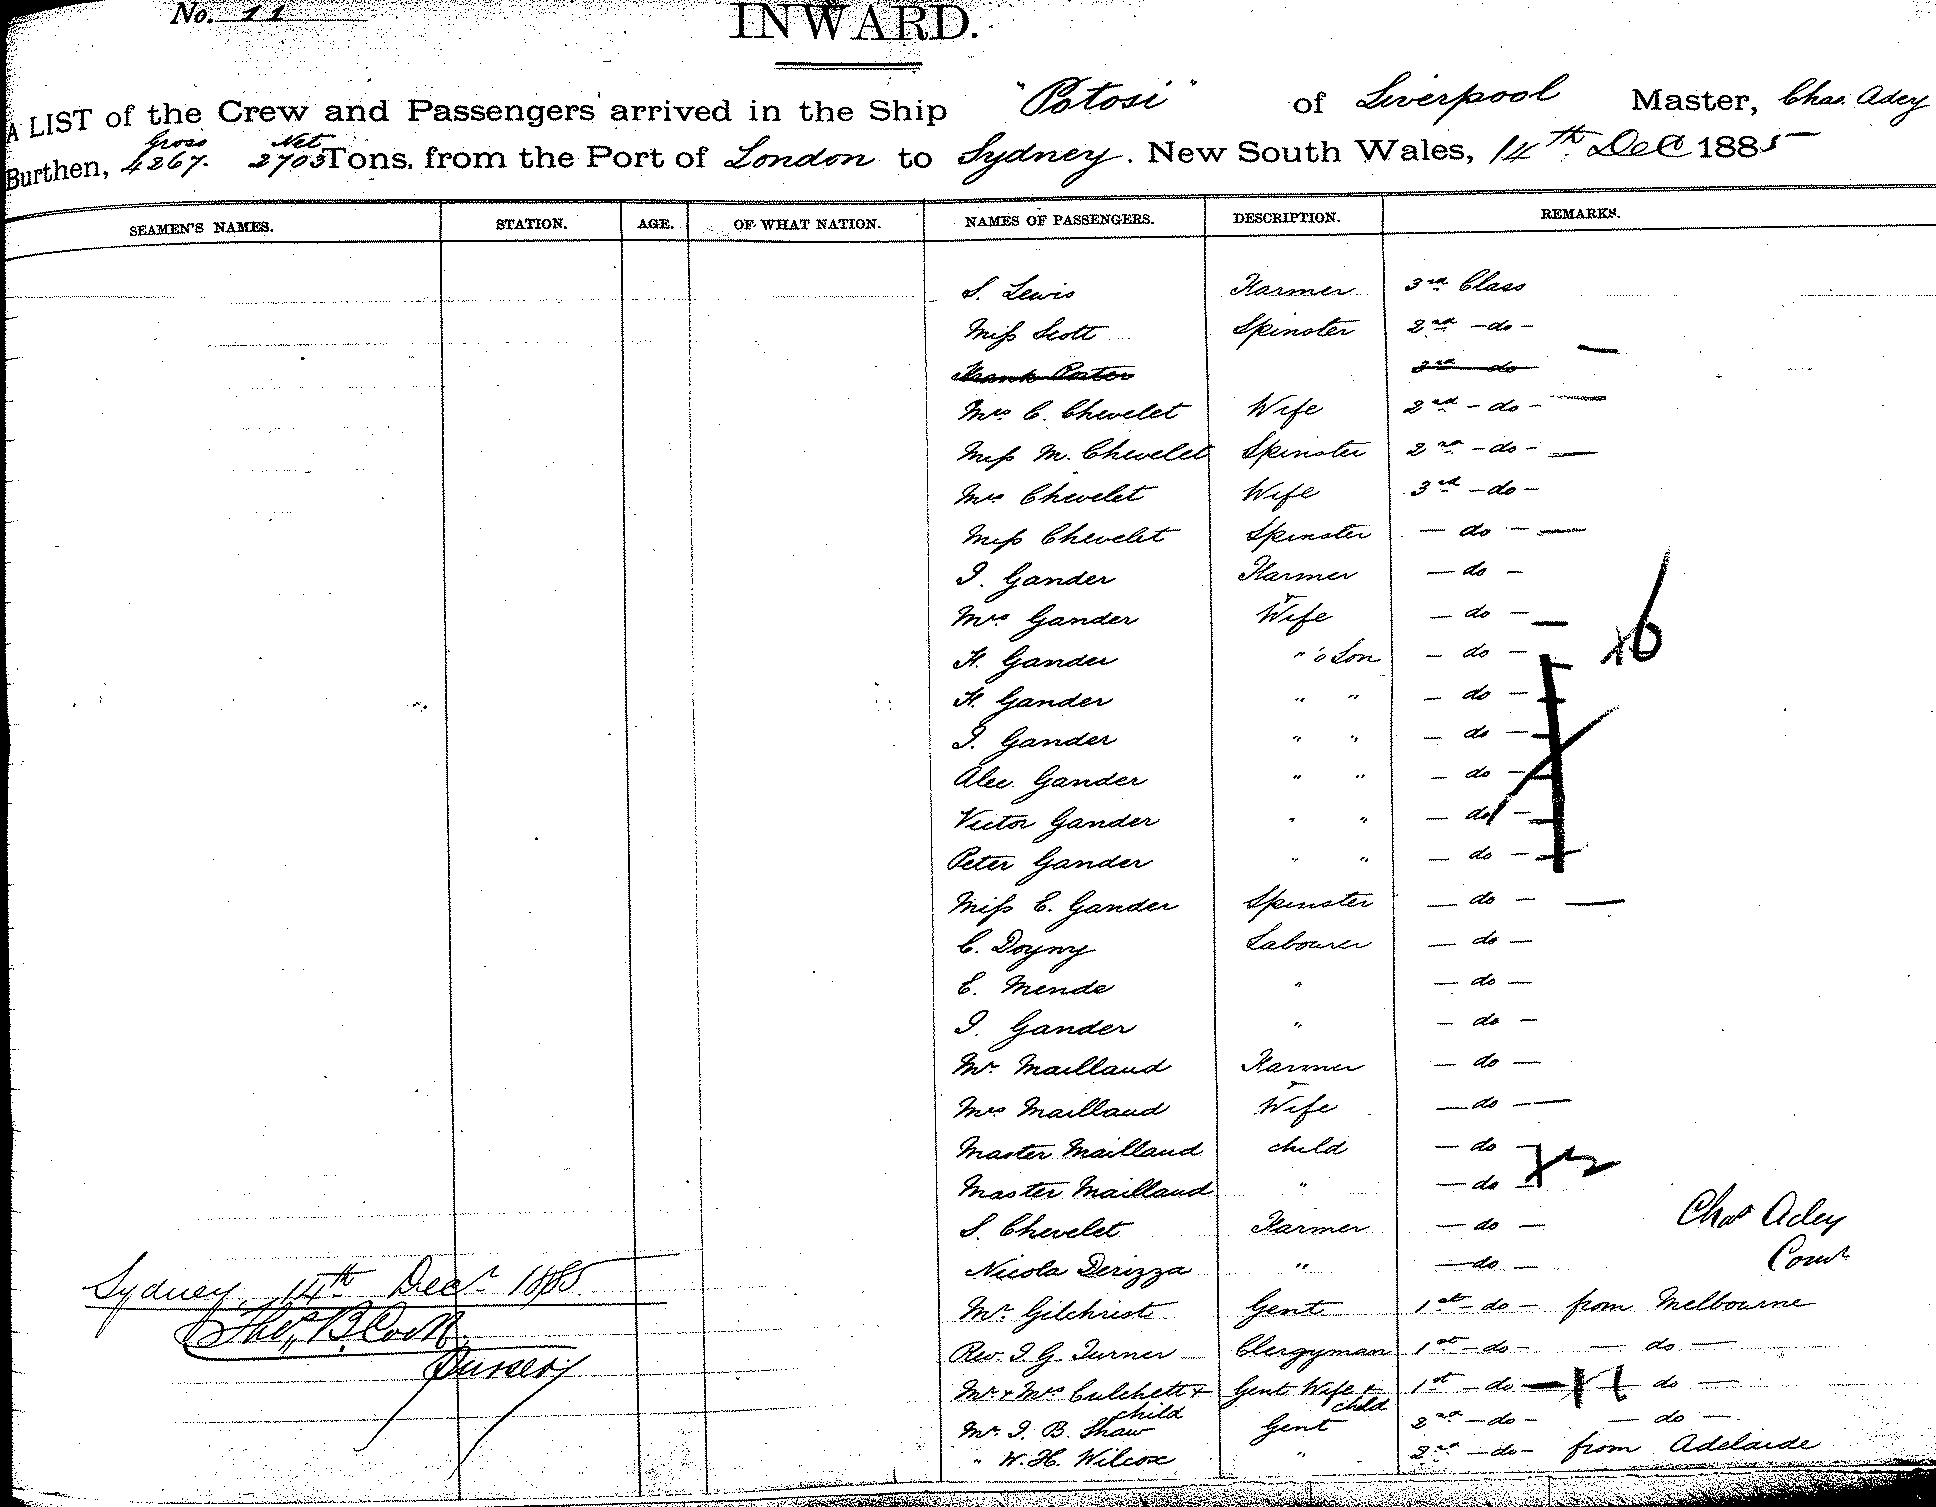 No. 11
INWARD.
A LIST of the Crew and Passengers arrived in the Ship "Potosi" of Liverpool Master, Chas. Adey
Burthen, Gross 4267. Net 2703 Tons. from the Port of London to Sydney. New South Wales, 14th Dec 1885
SEAMEN'S NAMES. STATION. AGE. OF WHAT NATION. NAMES OF PASSENGERS. DESCRIPTION. REMARKS.
S. Lewis Farmer 3rd Class
Miss Scott Spinster 2nd - do -
Frank Porter 3rd do
Mrs C. Chevelet Wife 2nd - do -
Miss M. Chevelet Spinster 2nd - do -
Mrs Chevelet Wife 3rd - do -
Miss Chevelet Spinster - do -
J. Gander Farmer - do -
Mrs Gander Wife - do -
H. Gander " 's Son - do -
H. Gander " " - do -
J. Gander " " - do -
Alec. Gander " " - do -
Victor Gander " " - do -
Peter Gander " " - do -
Miss E. Gander Spinster - do -
C. Doymy Labourer - do -
E. Mende " - do -
J. Gander " - do -
Mr. Maillaud Farmer - do -
Mrs Maillaud Wife - do -
Master Maillaud child - do -
Master Maillaud " - do -
S. Chevelet Farmer - do -
Nicola Derizza " - do -
Chas Adey
Comr
Sydney, 14th Decr 1885
Thos. B. Cook
Purser
Mr. Gilchrist Gent 1st - do - from Melbourne
Rev. J. G. Turner Clergyman 1st - do - - do -
Mr + Mrs Culchett + child Gent Wife + child 1st - do - - do -
Mr. J. B. Shaw Gent 2nd - do - - do -
" W. H. Wilcox " 2nd - do - from Adelaide